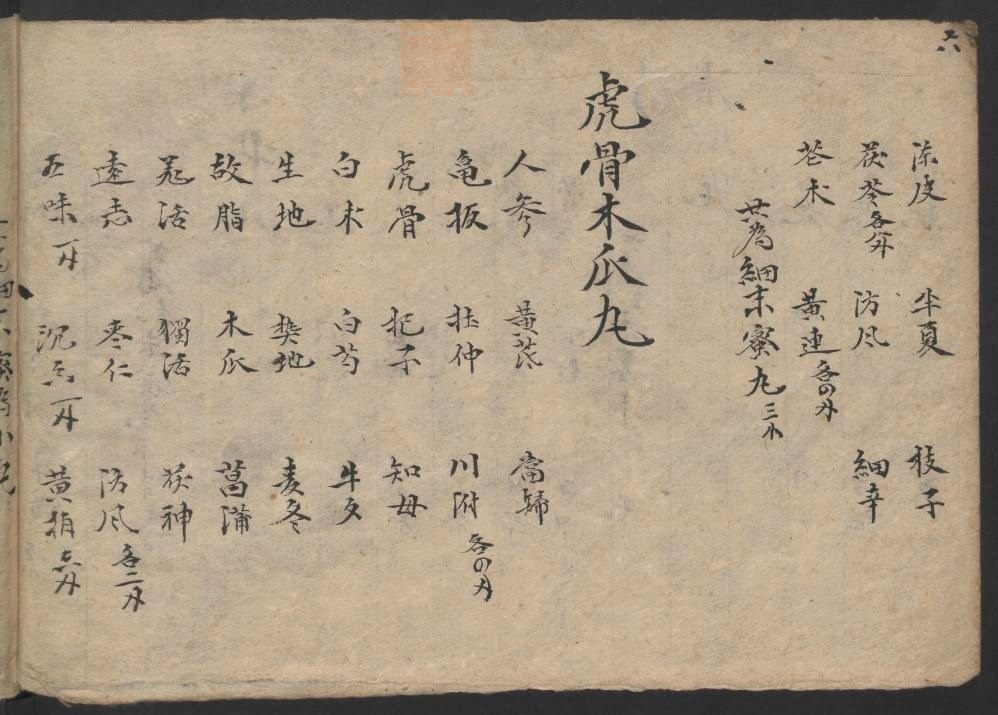 六
陳皮 半夏 枝子
茯苓 防風 細辛
蒼朮 黃連 各四刄
共為細末蜜丸
虎骨木瓜丸
人参 黄芪 當歸
亀板 杜仲 川附 各四刄
虎骨 杞子 知母
白朮 白芍 牛夕
生地 熟地 麦冬
故脂 木瓜 菖蒲
羌活 獨活 茯神
遠志 枣仁 防風 各二刄
五味 一刄 沉香 一刄 黄栢 六刄